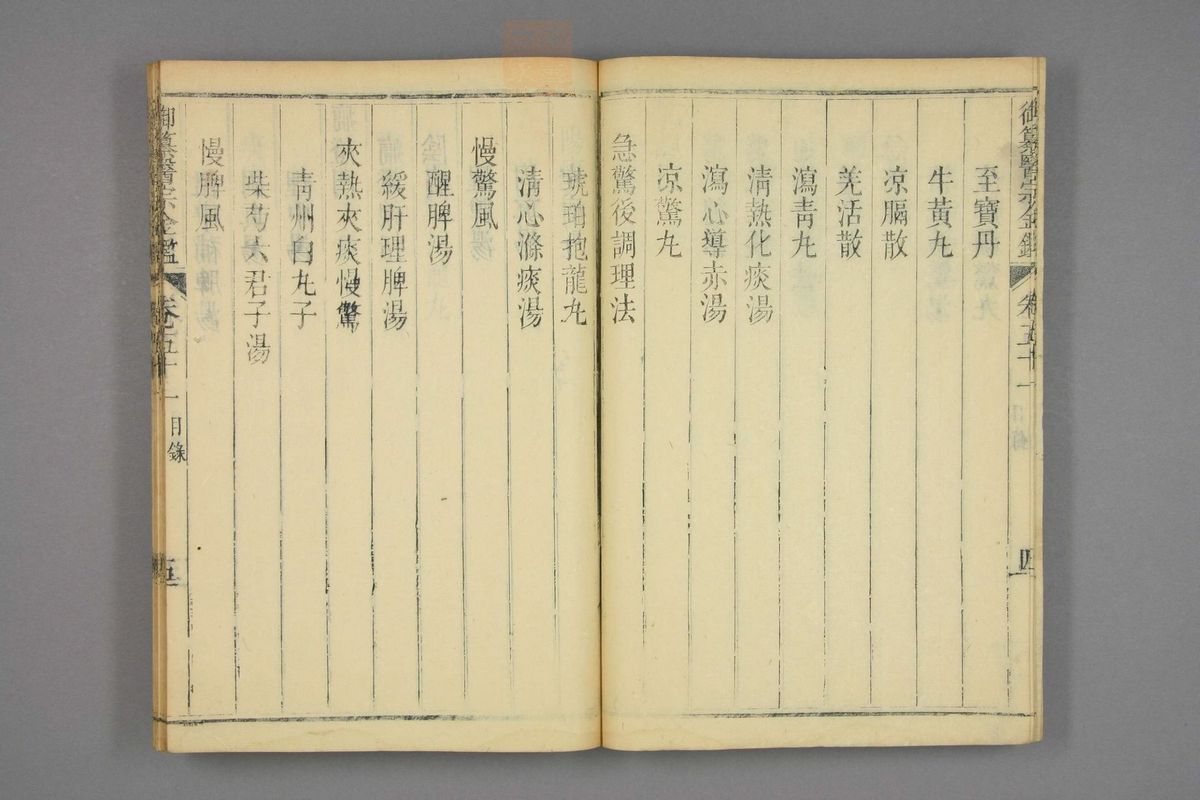 御纂醫宗金鑑 卷五十一
四
至寶丹
牛黃丸
凉膈散
羌活散
瀉青丸
清熱化痰湯
瀉心導赤湯
凉驚丸
急驚後調理法
琥珀抱龍丸
清心滌痰湯
慢驚風
醒脾湯
緩肝理脾湯
夾熱夾痰慢驚
青州白丸子
柴芍六君子湯
慢脾風
御纂醫宗金鑑 卷五十一 目錄
五